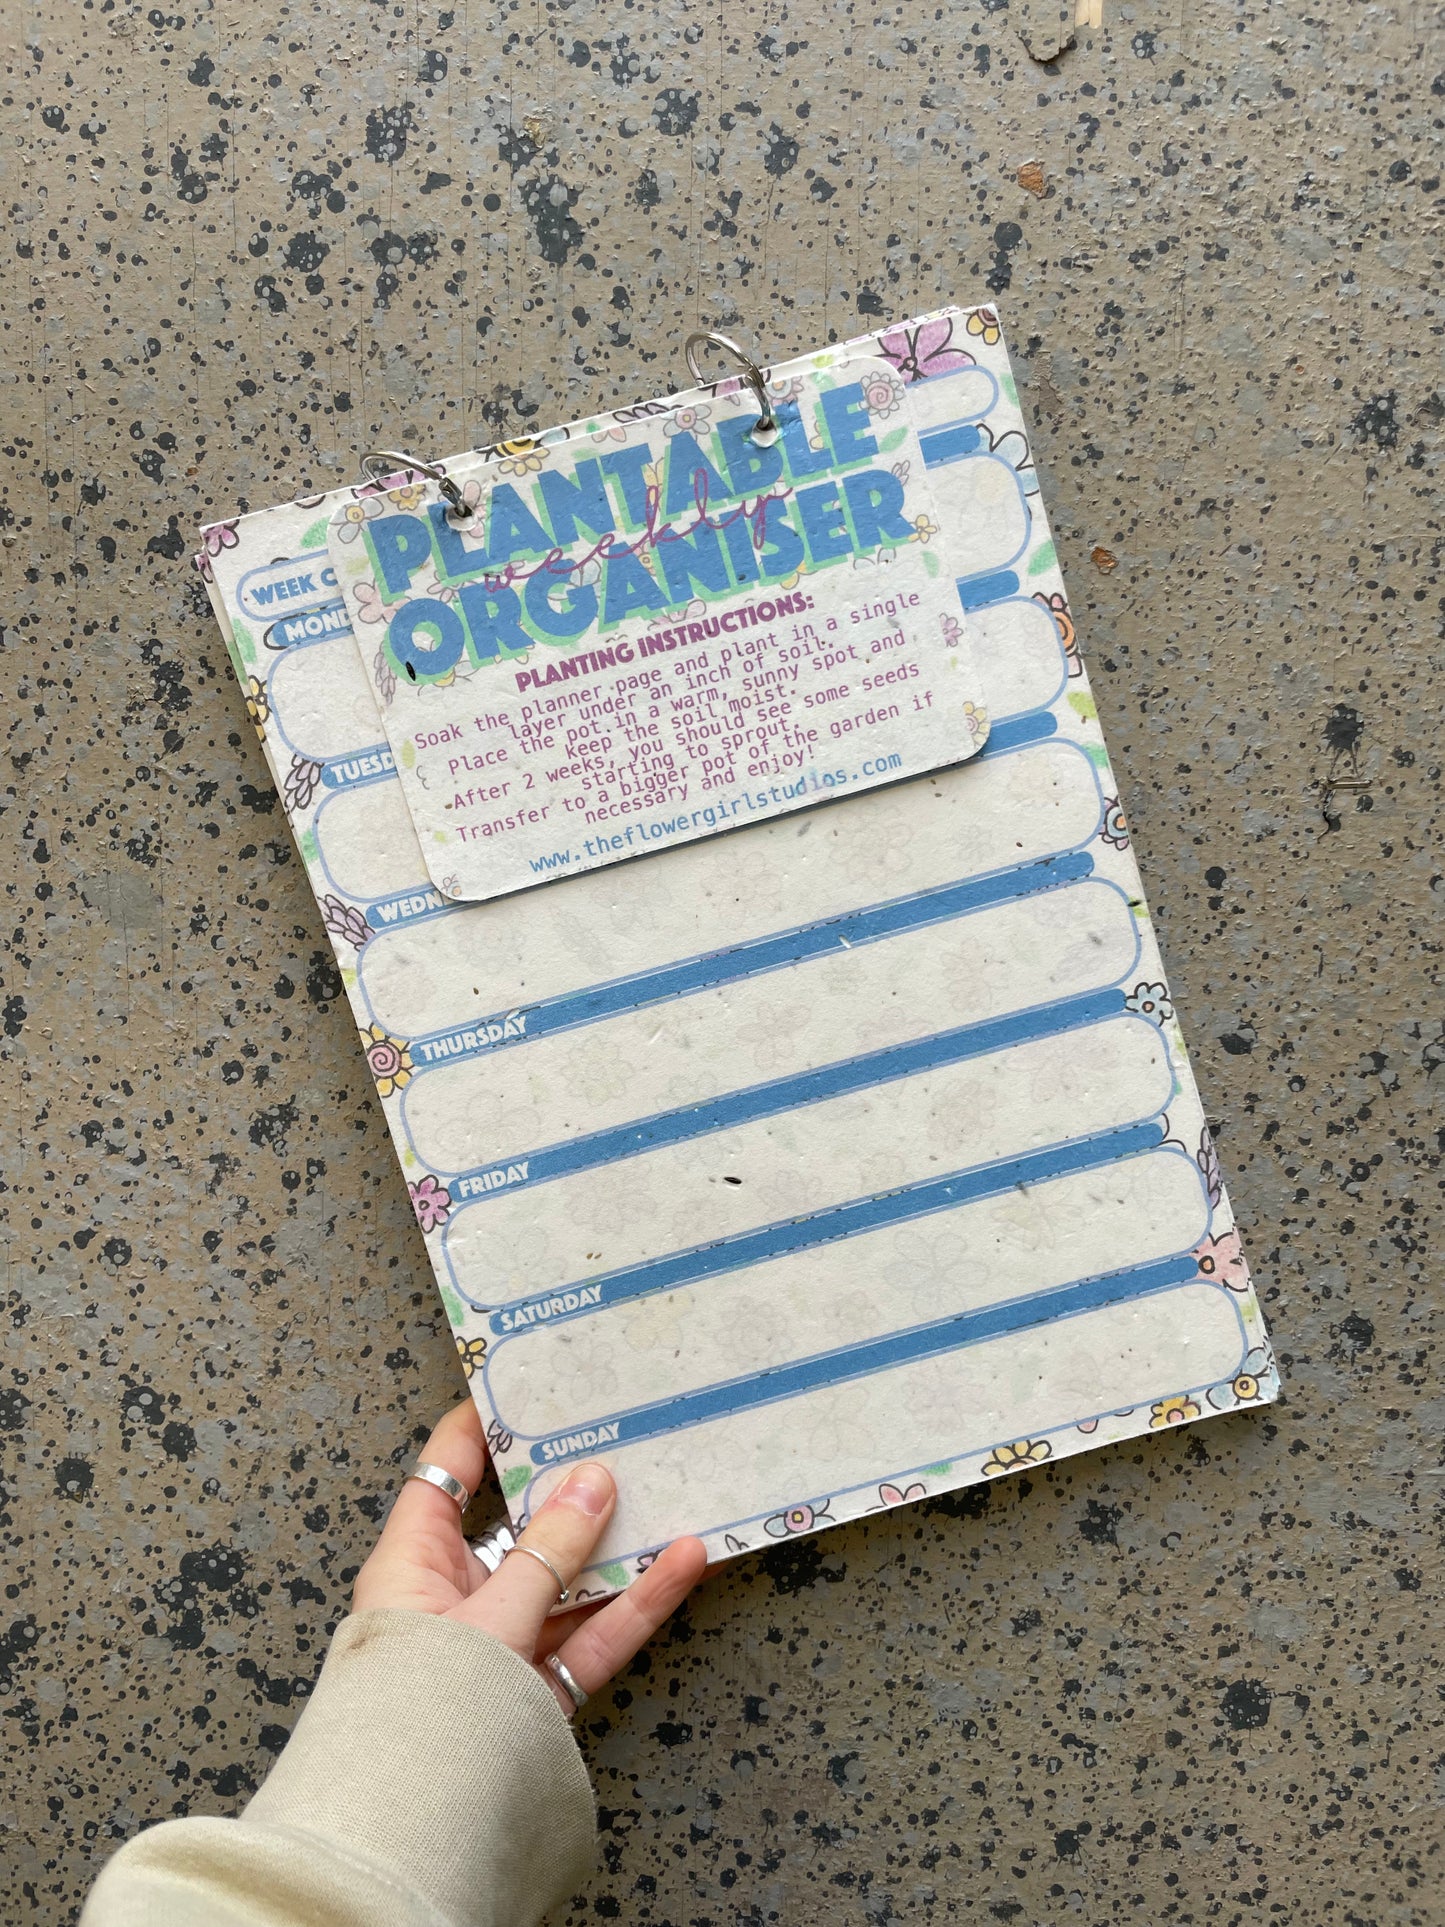 PLANTABLE
weekly
ORGANISER
PLANTING INSTRUCTIONS:
Soak the planner page and plant in a single
layer under an inch of soil.
Place the pot in a warm, sunny spot and
keep the soil moist.
After 2 weeks, you should see some seeds
starting to sprout.
Transfer to a bigger pot of the garden if
necessary and enjoy!
www.theflowergirlstudios.com
WEEK C
MOND
TUESD
WEDN
THURSDAY
FRIDAY
SATURDAY
SUNDAY